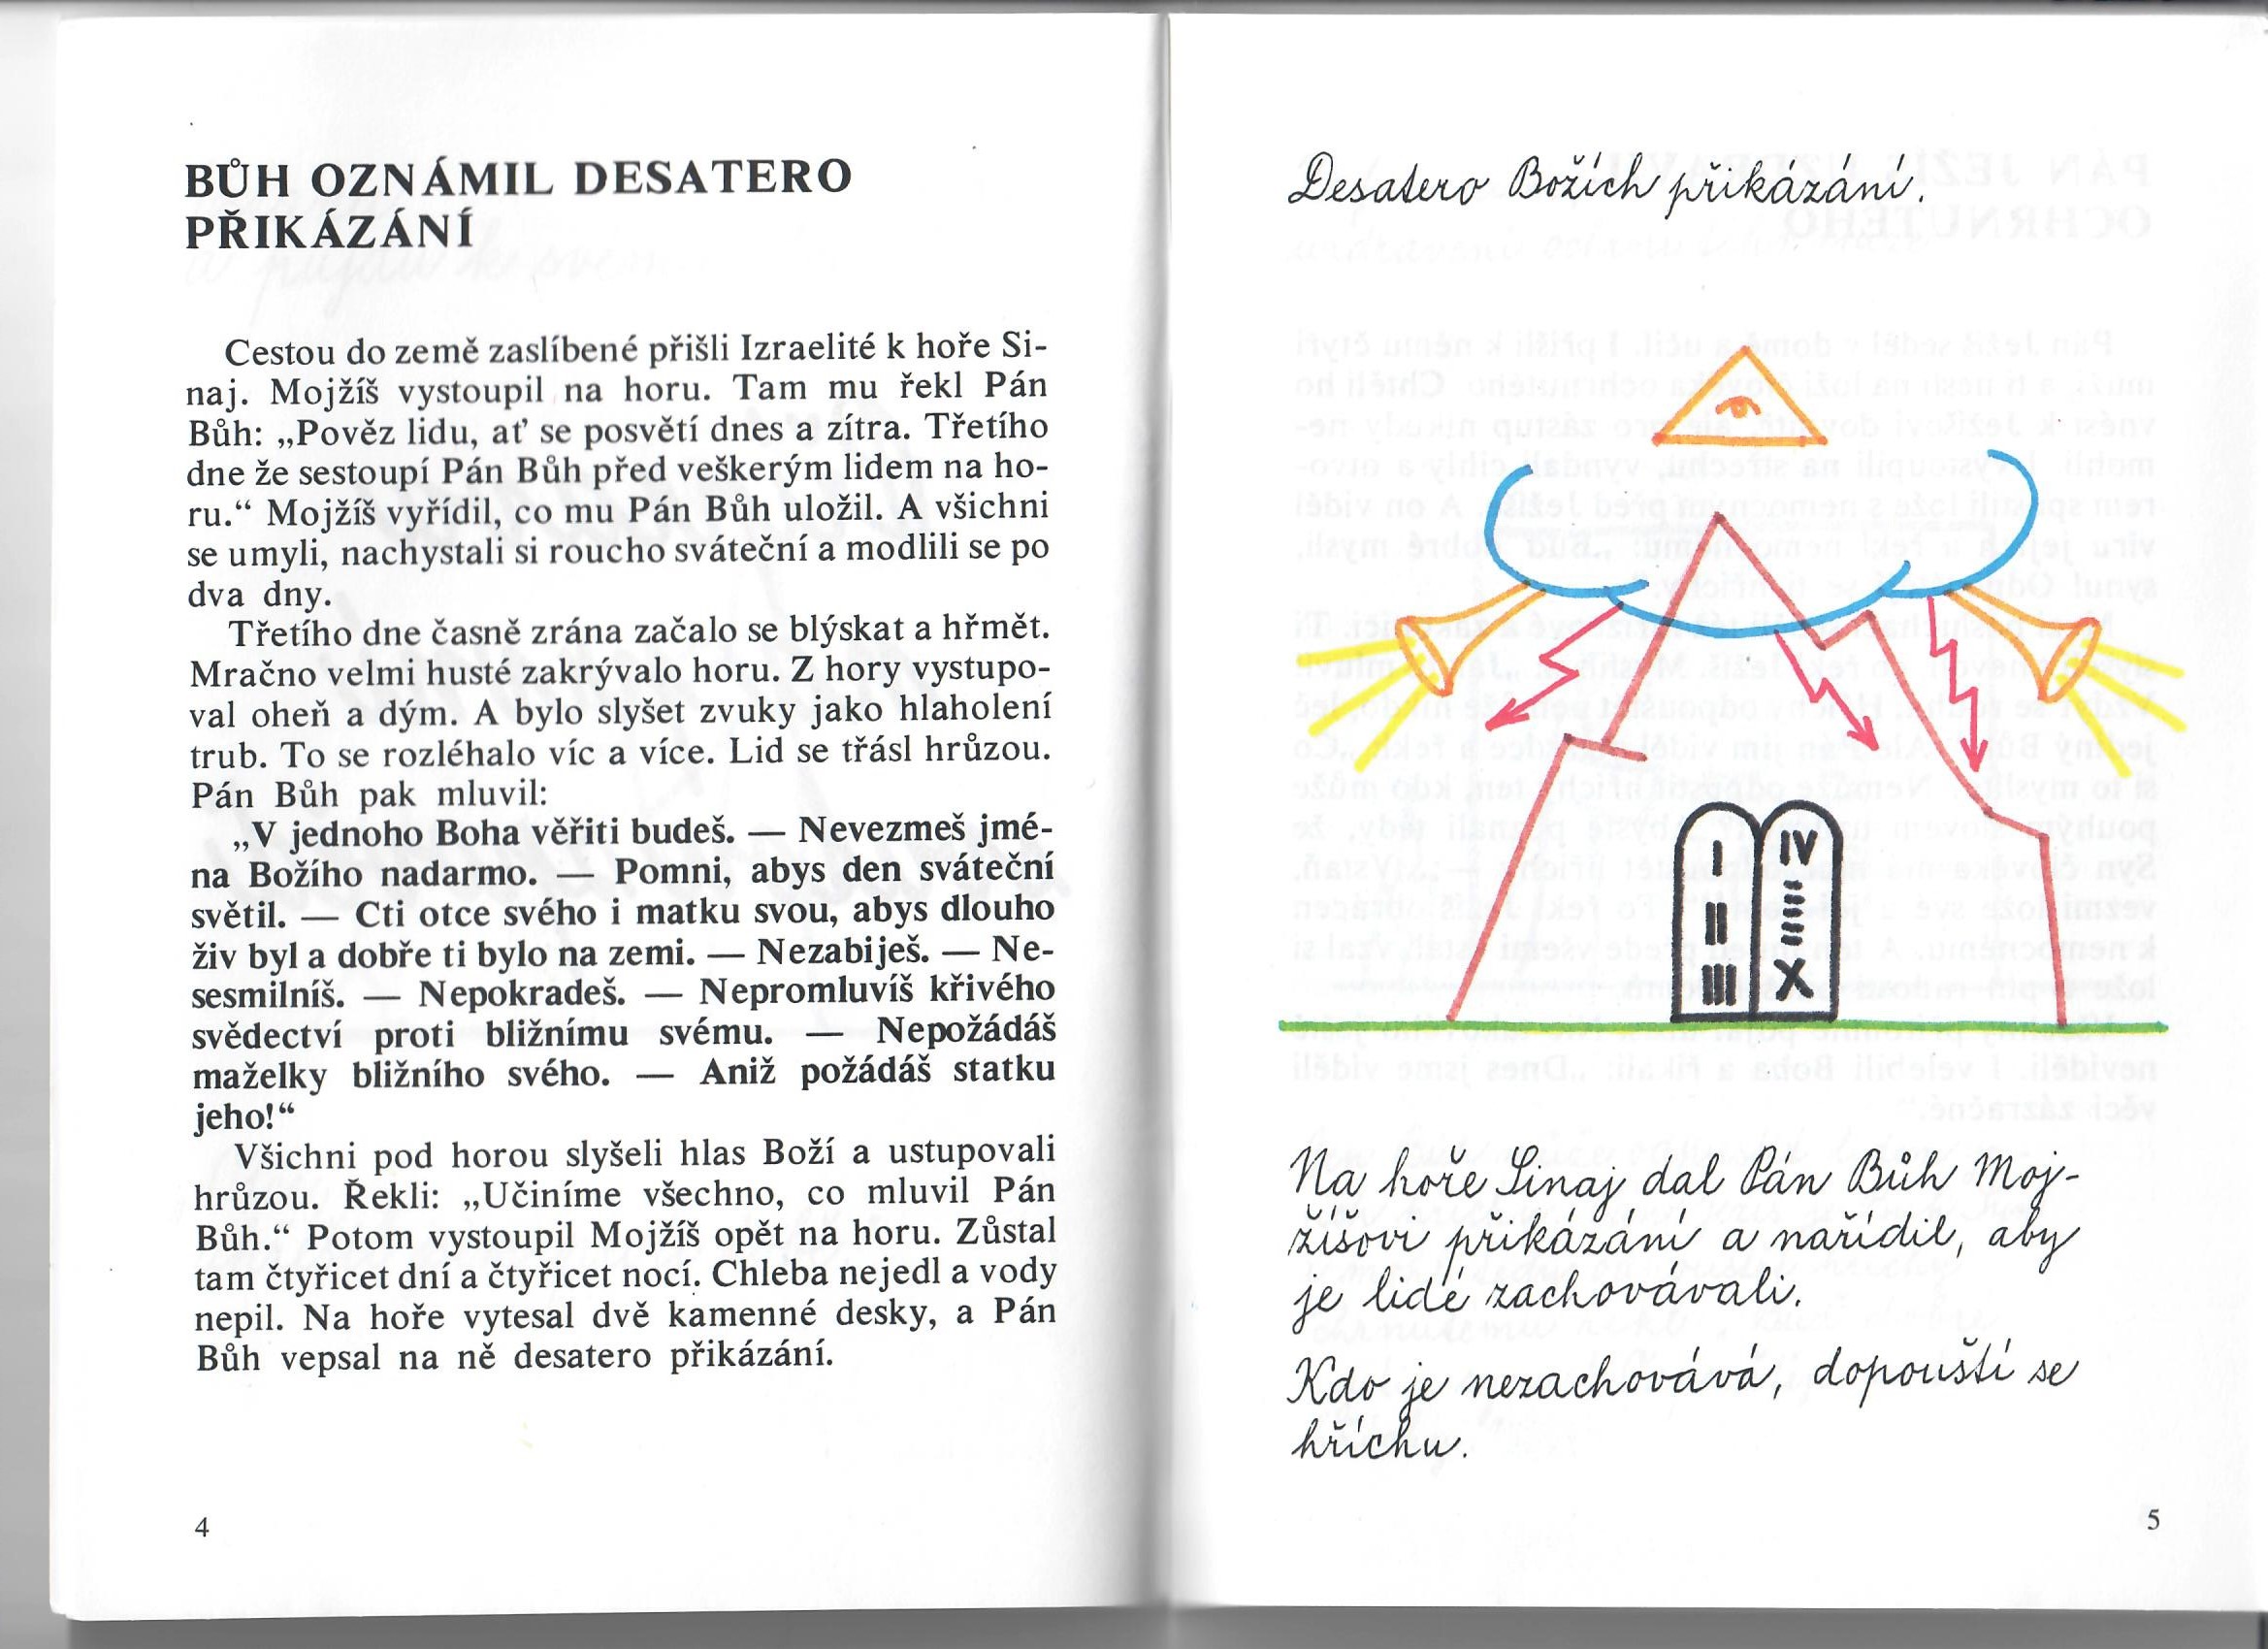 BŮH OZNÁMIL DESATERO
PŘIKÁZÁNÍ
Cestou do země zaslíbené přišli Izraelité k hoře Si-
naj. Mojžíš vystoupil na horu. Tam mu řekl Pán
Bůh: „Pověz lidu, ať se posvětí dnes a zítra. Třetího
dne že sestoupí Pán Bůh před veškerým lidem na ho-
ru.“ Mojžíš vyřídil, co mu Pán Bůh uložil. A všichni
se umyli, nachystali si roucho sváteční a modlili se po
dva dny.
Třetího dne časně zrána začalo se blýskat a hřmět.
Mračno velmi husté zakrývalo horu. Z hory vystupo-
val oheň a dým. A bylo slyšet zvuky jako hlaholení
trub. To se rozléhalo víc a více. Lid se třásl hrůzou.
Pán Bůh pak mluvil:
„V jednoho Boha věřiti budeš. — Nevezmeš jmé-
na Božího nadarmo. — Pomni, abys den sváteční
světil. — Cti otce svého i matku svou, abys dlouho
živ byl a dobře ti bylo na zemi. — Nezabiješ. — Ne-
sesmilníš. — Nepokradeš. — Nepromluvíš křivého
svědectví proti bližnímu svému. — Nepožádáš
maželky bližního svého. — Aniž požádáš statku
jeho!“
Všichni pod horou slyšeli hlas Boží a ustupovali
hrůzou. Řekli: „Učiníme všechno, co mluvil Pán
Bůh.“ Potom vystoupil Mojžíš opět na horu. Zůstal
tam čtyřicet dní a čtyřicet nocí. Chleba nejedl a vody
nepil. Na hoře vytesal dvě kamenné desky, a Pán
Bůh vepsal na ně desatero přikázání.
4
Desatero Božích přikázání.
I
II
III
IV
X
Na hoře Sinaj dal Pán Bůh Moj-
žíšovi přikázání a nařídil, aby
je lidé zachovávali.
Kdo je nezachovává, dopouští se
hříchu.
5